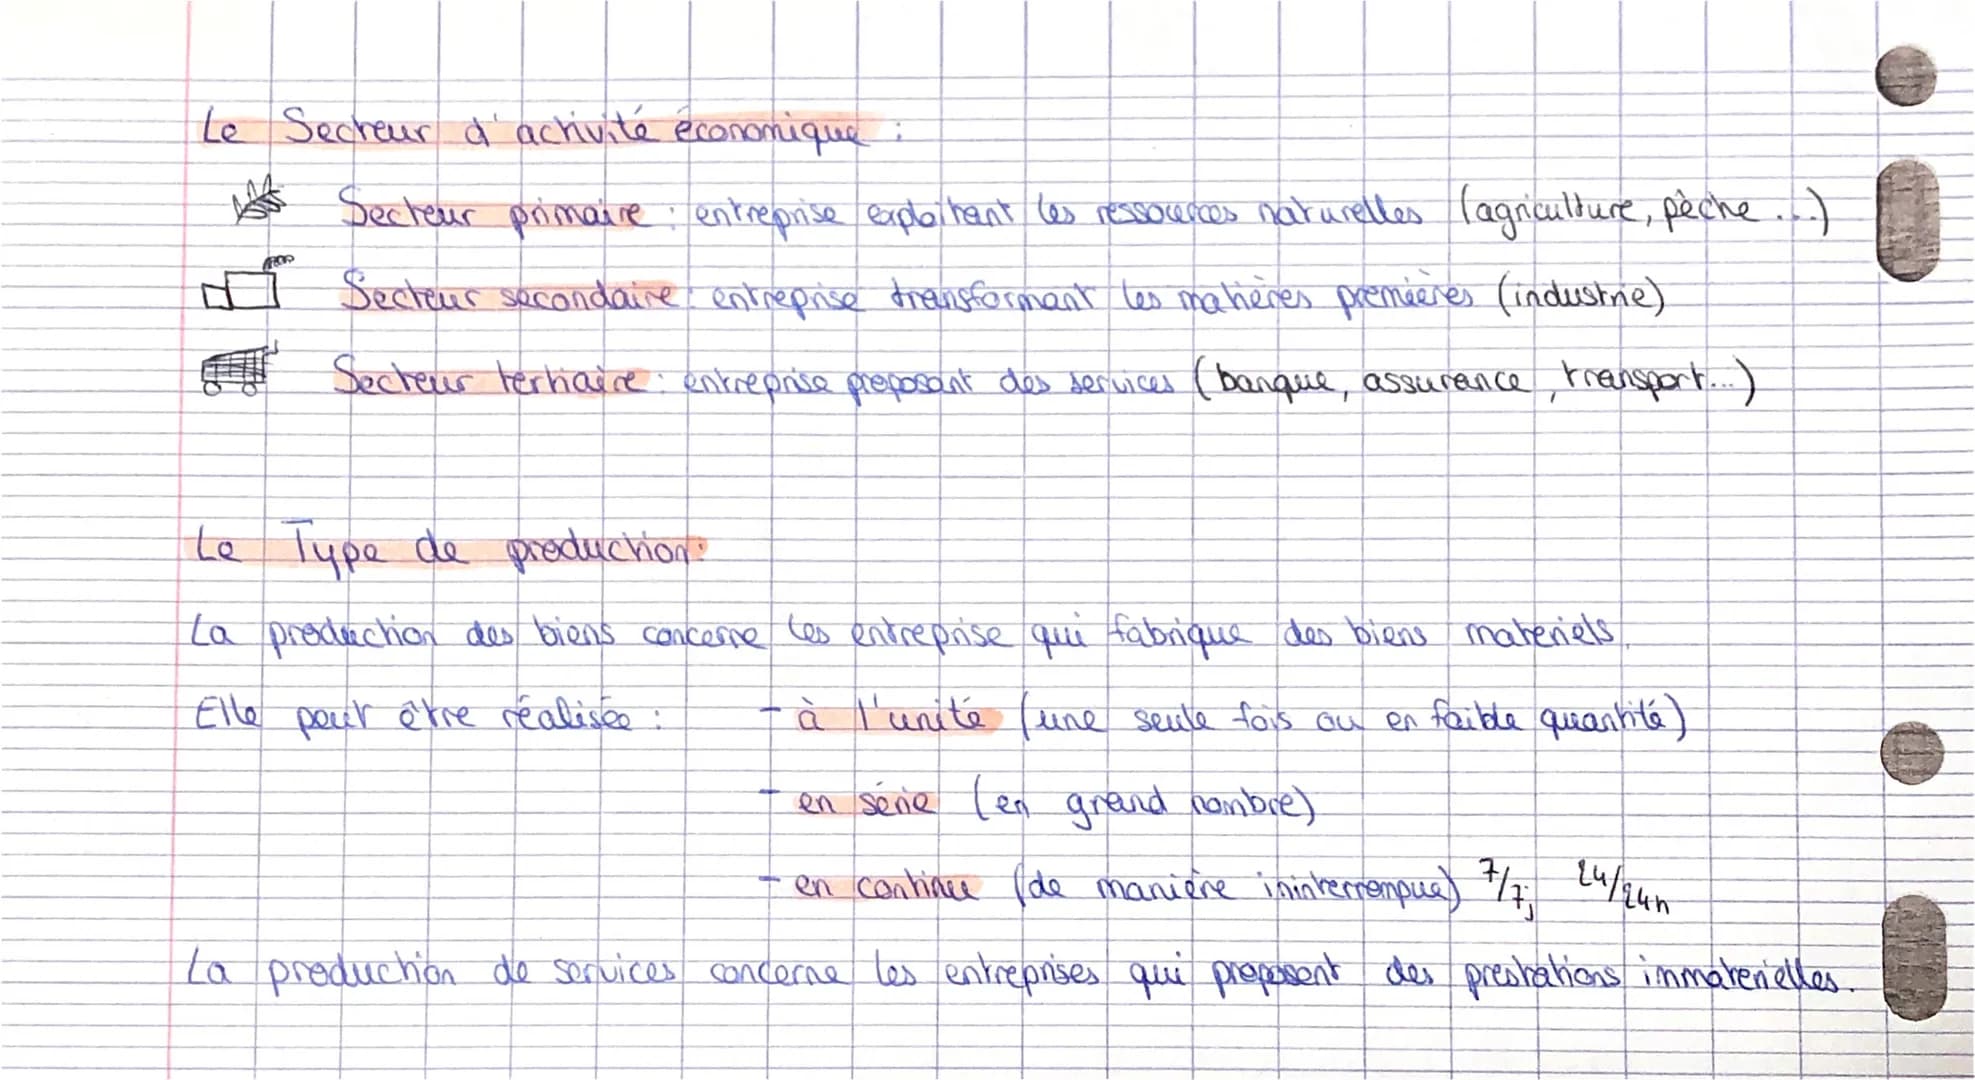 Le Secteur d'activité économique :
Secteur primaire : entreprise exploitant les ressources naturelles (agriculture, pèche ...)
Secteur secondaire : entreprise transformant les matières premières (industrie)
Secteur tertiaire : entreprise proposant des services (banque, assurance, transport...)
Le Type de production:
La production des biens concerne les entreprise qui fabrique des biens materiels.
Elle peut être réalisée : - à l'unité (une seule fois ou en faible quantité)
- en série (en grand nombre)
- en continue (de manière ininterrompue) 7/7j 24/24h
La production de services concerne les entreprises qui proposent des prestations inmaterielles.